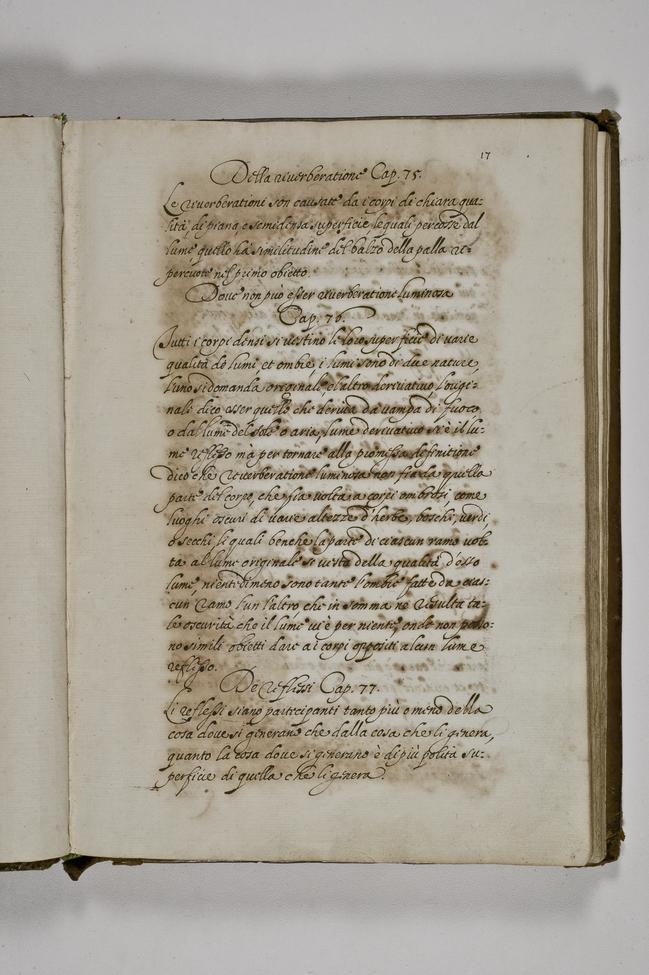 17
Della riverberatione Cap. 75.
Le riverberationi son causate da i corpi di chiara qua-
lità, di piana, e semidensa superficie, le quali percosse dal
lume quello ha similitudine del balzo della palla ri-
percuote nel primo obietto.
Dove non può esser riverberatione luminosa
Cap. 76.
Tutti i corpi densi si vestino le loro superficie di varie
qualità de lumi, et ombre, i lumi sono di due nature,
l'uno si domanda originale, e l'altro derivativo, l'origi-
nale dico esser quello che deriva da vampa di fuoco,
o dal lume del sole o aria, lume derivativo si è il lu-
me reflesso, mà per tornare alla promessa definitione
dico che riverberatione luminosa non fia da quella
parte del corpo, che fia volta a corpi ombrosi come
luoghi oscuri di varie altezze d'herbe, boschi, verdi
ò secchi, le quali benche la parte di ciascun ramo vol-
ta al lume originale si vesta della qualità d'esso
lume, nientedimeno sono tante l'ombre fatte da cias-
cun ramo l'un l'altro, che in somma ne resulta ta-
le oscurità che il lume vi è per niente, onde non posso-
no simili obietti dare a i corpi oppositi alcun lume
reflesso.
De reflessi Cap. 77.
Li reflessi siano partecipanti tanto più o meno della
cosa dove si generano che dalla cosa che li genera,
quanto la cosa dove si generano è di più polita su-
perficie di quella che li genera.